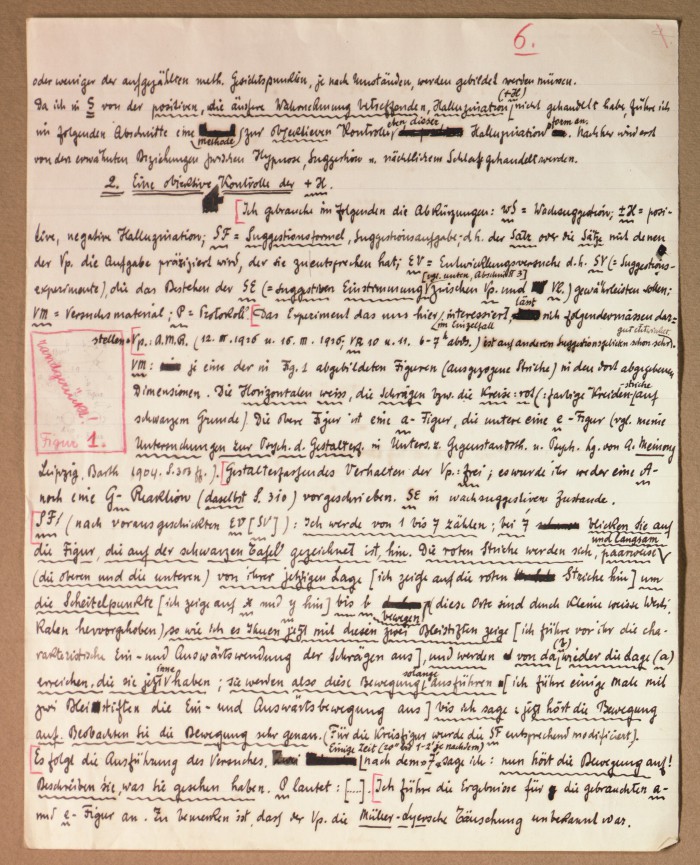 6.
oder weniger der aufgezählten meth. Gesichtspunkten, je nach Umständen, werden gebildet werden müssen.
Da ich in § von der positiven, die äußere Wahrnehmung betreffenden, Halluzination (+H) [nicht gehandelt habe, führe ich
im folgenden Abschnitte eine methode zur objektiven Kontrolle eben dieser Halluzination vor. Nachher wird erst
von den erwähnten Beziehungen zwischen Hypnose, Suggestion u. nächtlichem Schlaf gehandelt werden.
2. Eine objektive Kontrolle der +H.
[Ich gebrauche im folgenden die Abkürzungen: WS = Wachsuggestion; ±H = posi-
tive, negative Halluzination; SF = Suggestionsformel, Suggestionsaufgabe, d.h. der Satz oder die Sätze mit denen
der Vp. die Aufgabe präzisiert wird, der sie zu entsprechen hat; EV = Entwicklungsversuche d.h. SV (= Suggestions-
experimente), die das Bestehen der SE (= suggestiven Einstimmung [vgl. unten, Abschnitt 3] zwischen Vp. und Vl.) gewährleisten sollen;
VM = Versuchsmaterial; P = Protokoll. [Das Experiment das uns hier im Einzelfall interessiert, läßt sich folgendermassen dar-
stellen: Vp.: A.M.R. (12. III. 1926 u. 16. III. 1926, VR 10 u. 11. 6-7h abds.) ist auf anderen Suggestionsgebieten schon sehr gut entwickelt.
VM: je eine der in Fig. 1 abgebildeten Figuren (ausgezogene Striche) in den dort abgegebenen
Dimensionen. Die Horizontalen weiss, die Schrägen bzw. die Kreise: rot (: farbige Kreidenstriche auf
schwarzem Grunde). Die obere Figur ist eine a- Figur, die untere eine e- Figur (vgl. meine
Untersuchungen zur Psych. d. Gestalterf. in Unters. z. Gegenstandsth. u. Psych. hg. von A. Meinong
randgerückt!
Figur 1.
Leipzig, Barth 1904. S. 303 ff.). [Gestalterfassendes Verhalten der Vp.: frei; es wurde ihr weder eine A-
noch eine G- Reaktion (daselbst S. 310) vorgeschrieben. SE in wachsuggestivem Zustande.
[SF/ (nach vorausgeschickten EV [SV]): Ich werde von 1 bis 7 zählen; bei 7 blicken sie auf
die Figur, die auf der schwarzen Tafel gezeichnet ist, hin. Die roten Striche werden sich, paarweise und langsam
(die oberen und die unteren) von ihrer jetzigen Lage [ich zeige auf die roten Striche hin] um
die Scheitelpunkte [ich zeige auf x und y hin] bis b bewegen (diese Orte sind durch kleine weisse Verti-
kalen hervorgehoben), so wie ich es Ihnen jetzt mit diesen zwei Bleistiften zeige [ich führe vor ihr die cha-
rakteristische Ein- und Auswärtswendung der Schrägen aus], und werden von da (b) wieder die Lage (a)
erreichen, die sie jetzt inne haben; sie werden also diese Bewegung solange ausführen [ich führe einige Male mit
zwei Bleistiften die Ein- und Auswärtsbewegung aus] bis ich sage: jetzt hört die Bewegung
auf. Beobachten Sie die Bewegung sehr genau. (Für die Kreisfigur wurde die SF entsprechend modificiert).
[Es folgt die Ausführung des Versuches. Einige Zeit (20" bis 1-2' je nachdem) [nach dem 7, sage ich: nun hört die Bewegung auf!
Beschreiben Sie, was Sie gesehen haben. P lautet: [....]. [Ich führe die Ergebnisse für die gebrauchten a-
und e- Figur an. Zu bemerken ist dass der Vp. die Müller-Lyersche Täuschung unbekannt war.